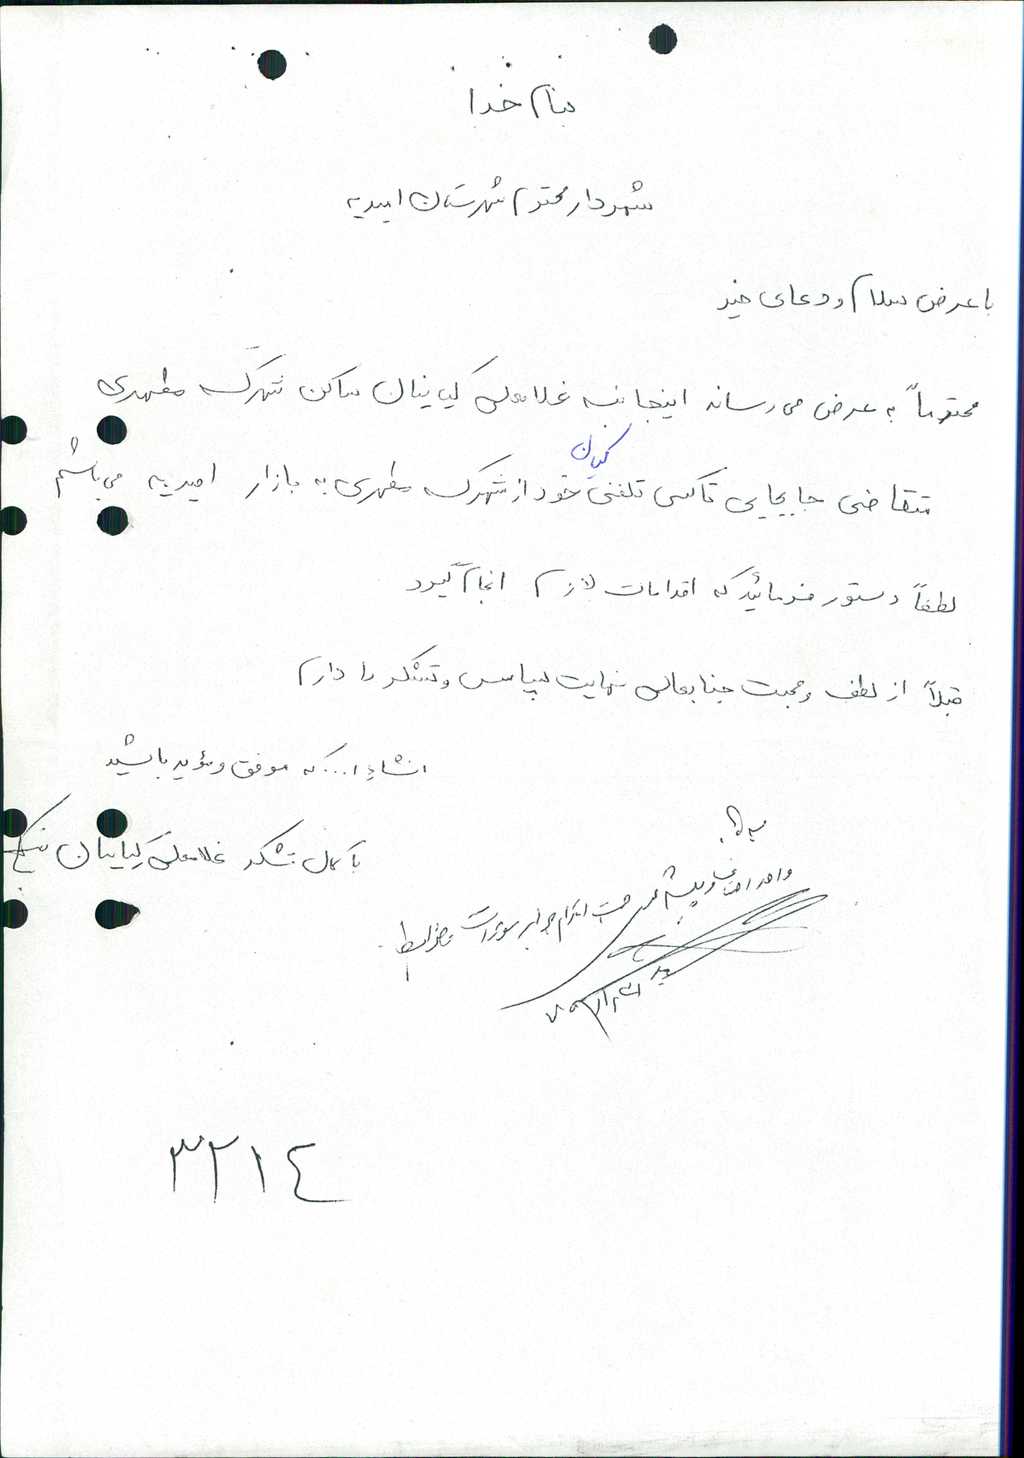 بنام خدا
شهردار محترم شهرستان امیدیه
با عرض سلام و دعای خیر
محترماً به عرض می رساند اینجانب غلامعلی کیانیان ساکن شهرک مطهری
کیان
متقاضی جابجایی تاکسی تلفنی خود از شهرک مطهری به بازار امیدیه می باشم
لطفاً دستور فرمائید که اقدامات لازم انجام گیرد
قبلاً از لطف و محبت جنابعالی نهایت سپاس و تشکر را دارم
انشاء ا... که موفق و مؤید باشید
با کمال تشکر غلامعلی کیانیان
واحد اصناف و پیشه جهت اعلام
۳۲۱٤